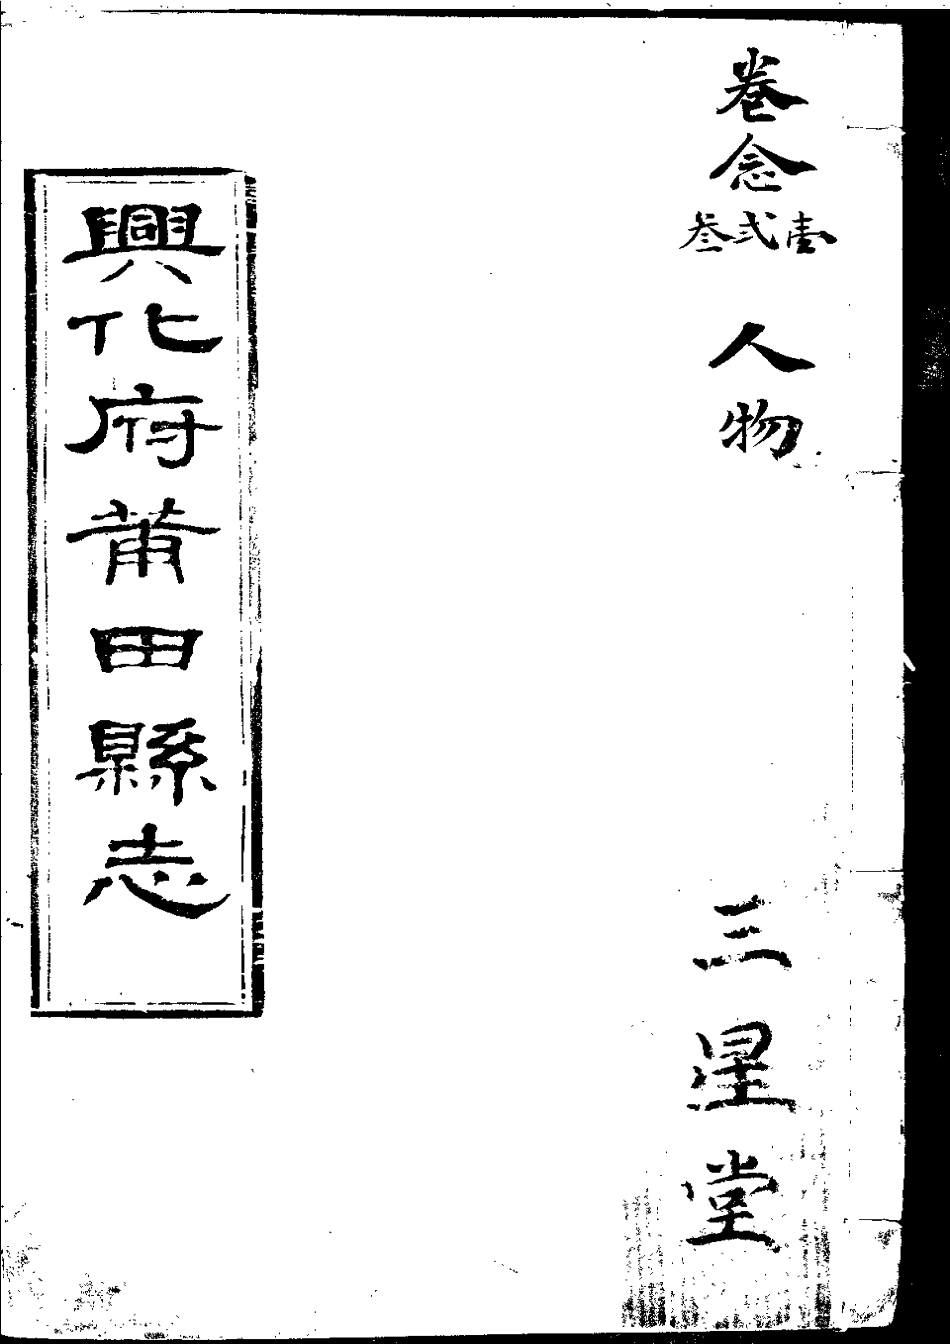 卷念壹弍叁
人物
三星堂
興化府莆田縣志